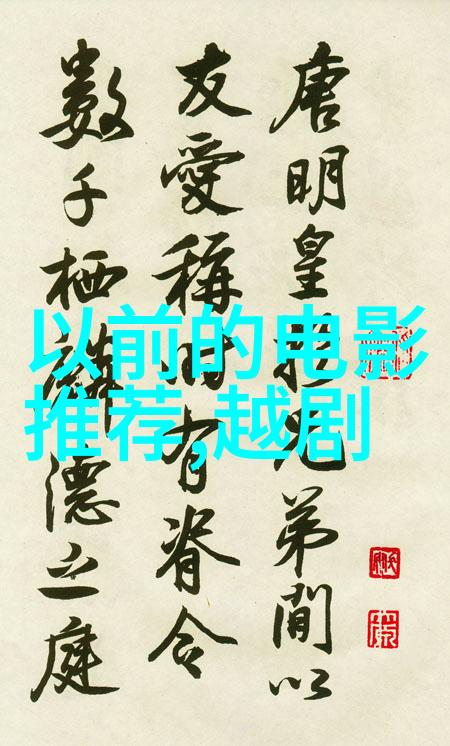 唐明皇於兄弟間以
友愛稱時有脊令
數千栖麟德之庭
以前的电影
推荐,越剧